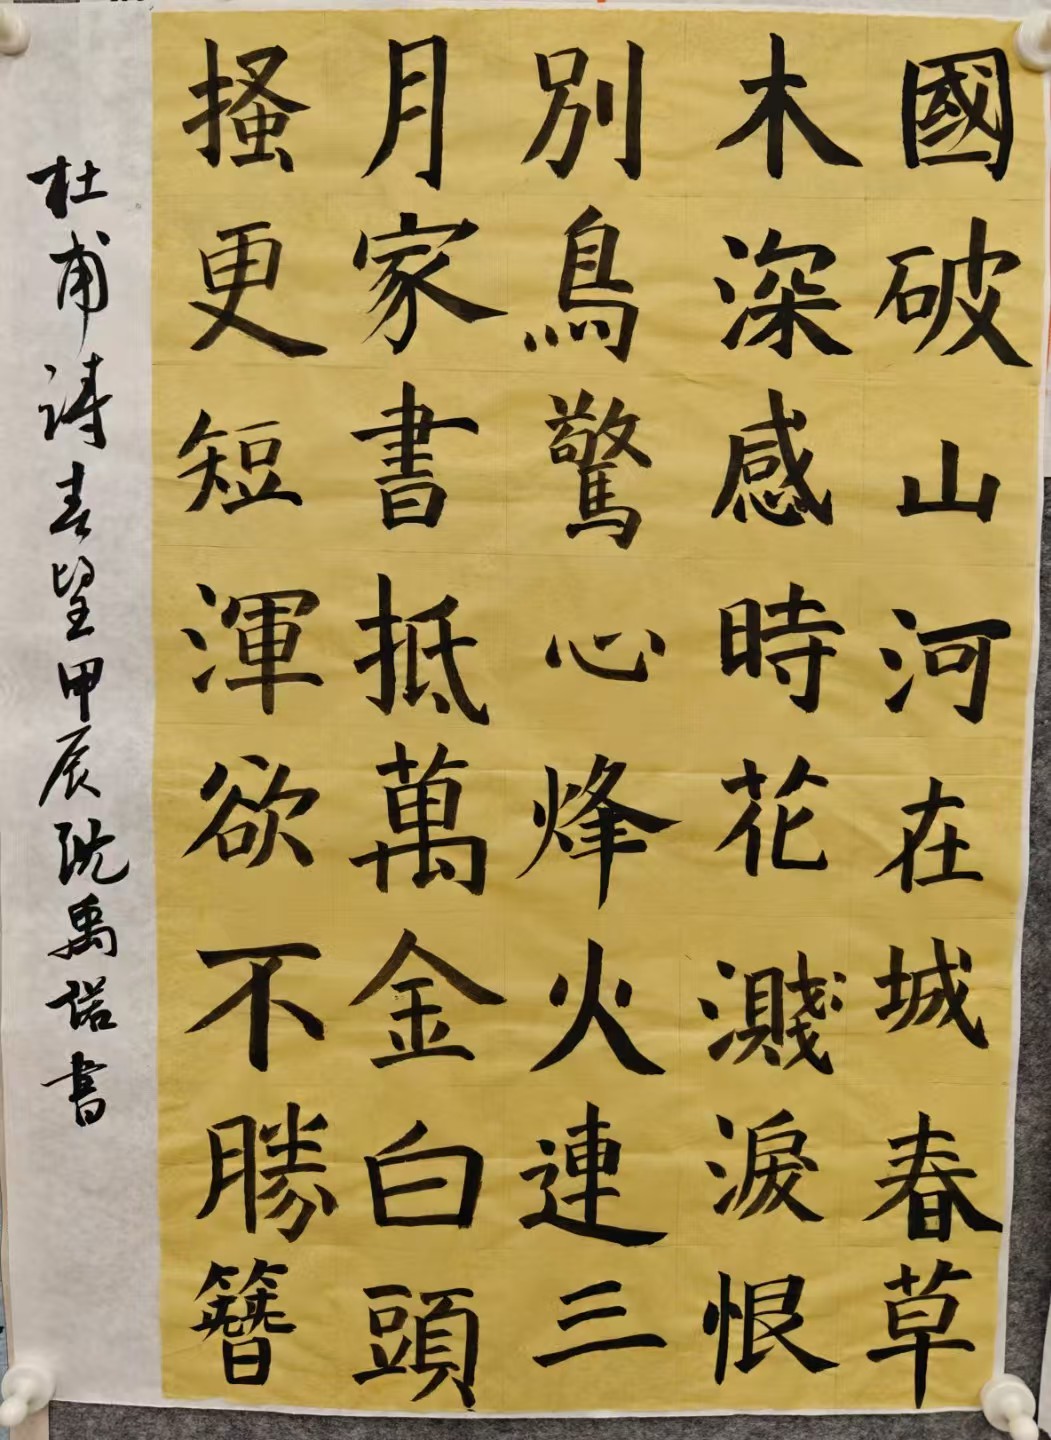 國破山河在城春草
木深感時花濺淚恨
別鳥驚心烽火連三
月家書抵萬金白頭
搔更短渾欲不勝簪
杜甫詩春望甲辰沈禹諾書